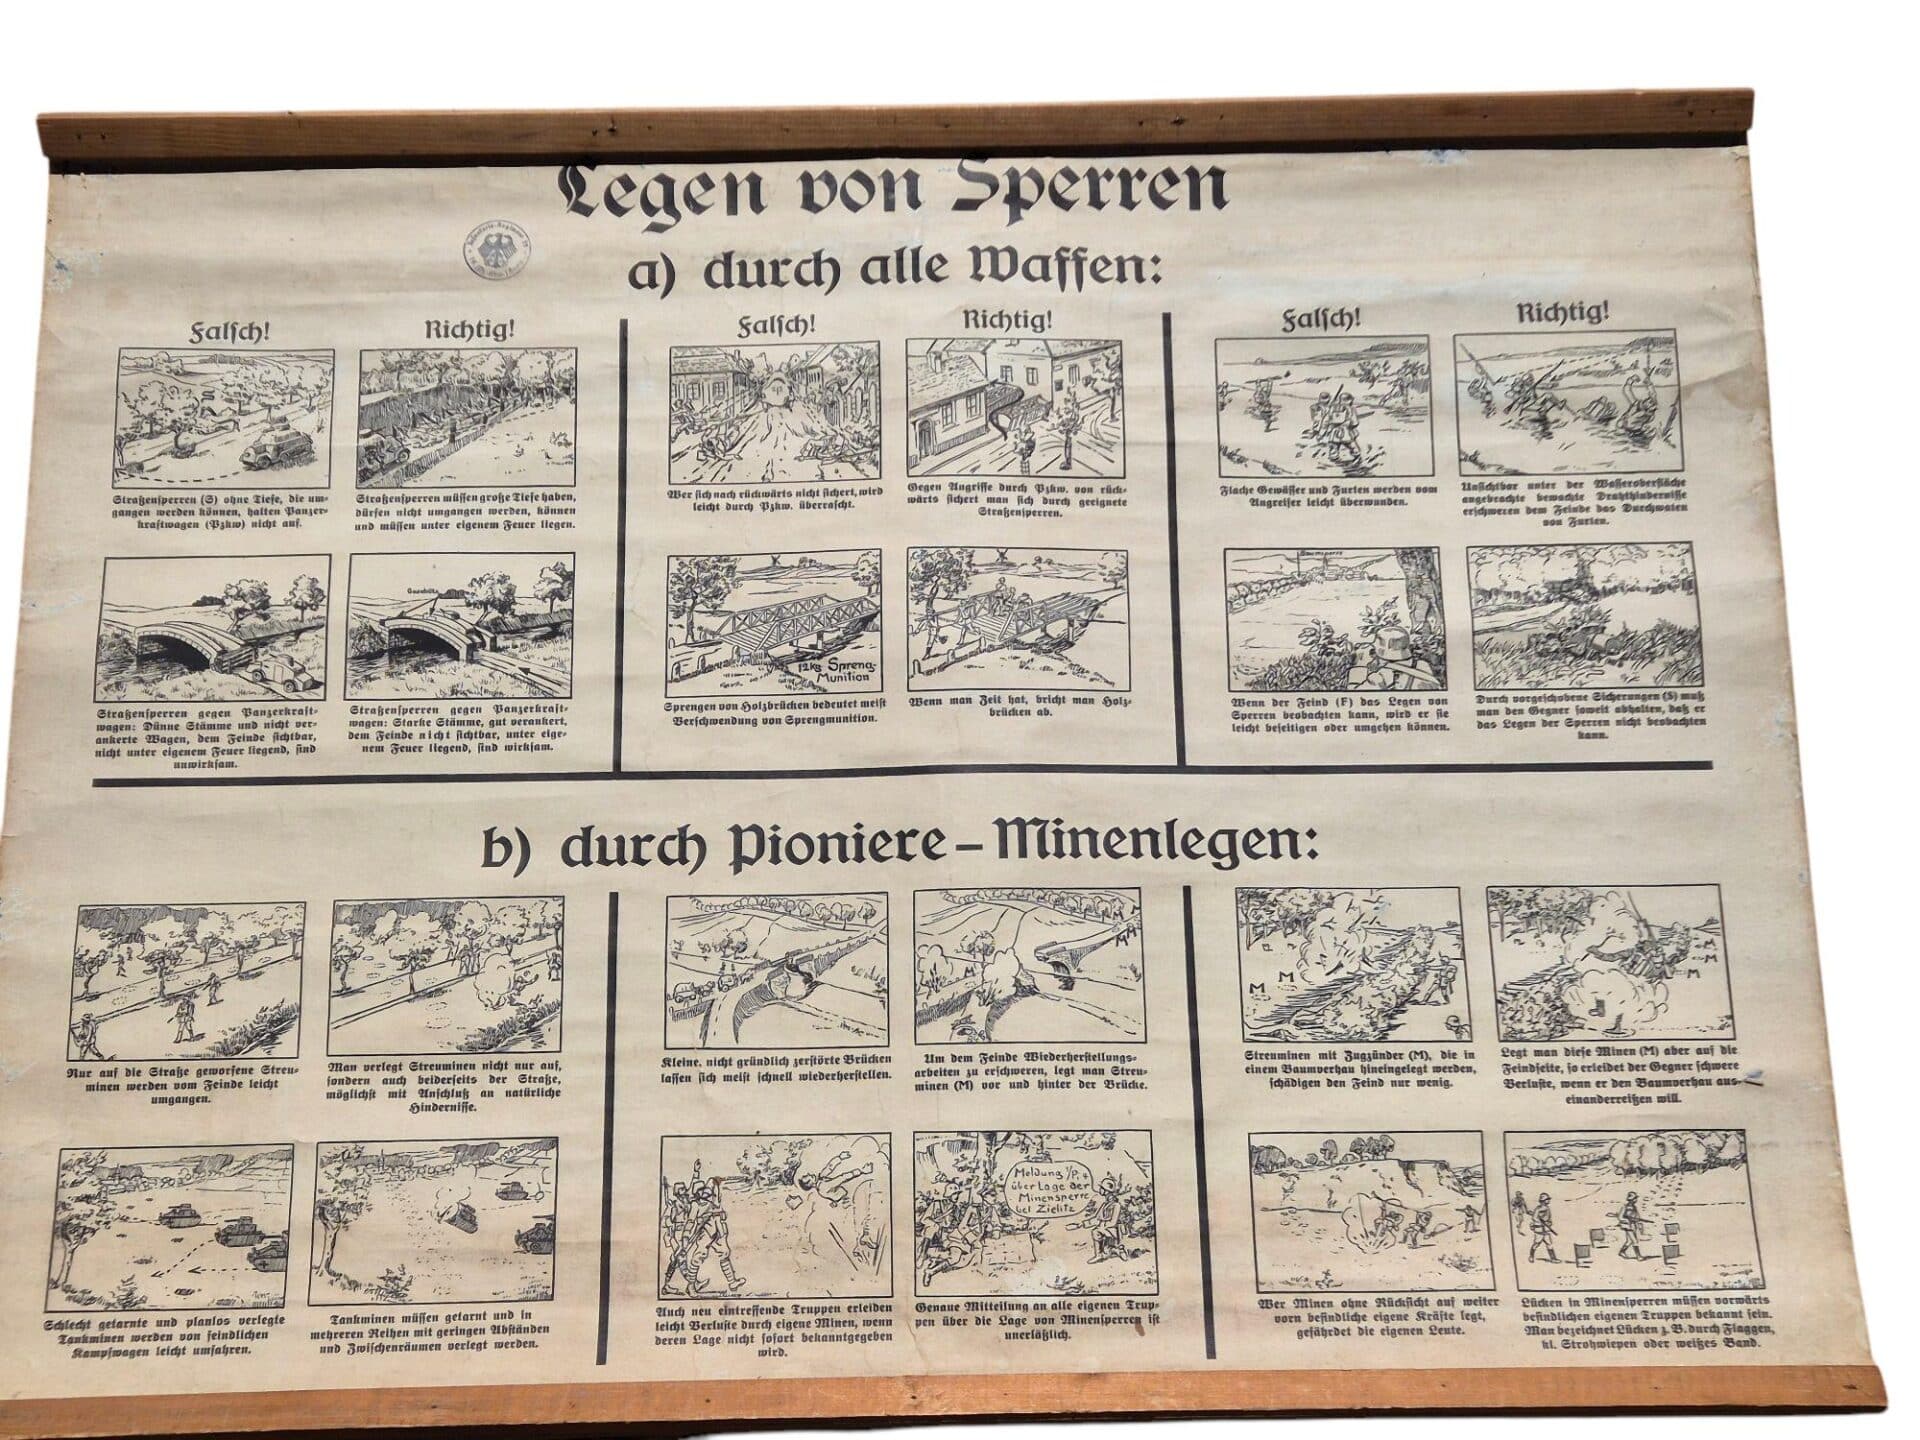 Legen von Sperren
a) durch alle Waffen:
Falsch!
Richtig!
Falsch!
Richtig!
Falsch!
Richtig!
Straßensperren (S) ohne Tiefe, die um-
gangen werden können, halten Panzer-
kraftwagen (Pzkw) nicht auf.
Straßensperren müssen große Tiefe haben,
dürfen nicht umgangen werden, können
und müssen unter eigenem Feuer liegen.
Wer sich nach rückwärts nicht sichert, wird
leicht durch Pzkw. überrascht.
Gegen Angriffe durch Pzkw. von rück-
wärts sichert man sich durch geeignete
Straßensperren.
Flache Gewässer und Furten werden vom
Angreifer leicht überwunden.
Unsichtbar unter der Wasseroberfläche
angebrachte bewachte Drahthindernisse
erschweren dem Feinde das Durchwaten
von Furten.
Geschütz
12kg Spreng-
Munition
Baumsperre
Straßensperren gegen Panzerkraft-
wagen: Dünne Stämme und nicht ver-
ankerte Wagen, dem Feinde sichtbar,
nicht unter eigenem Feuer liegend, sind
unwirksam.
Straßensperren gegen Panzerkraft-
wagen: Starke Stämme, gut verankert,
dem Feinde nicht sichtbar, unter eige-
nem Feuer liegend, sind wirksam.
Sprengen von Holzbrücken bedeutet meist
Verschwendung von Sprengmunition.
Wenn man Zeit hat, bricht man Holz-
brücken ab.
Wenn der Feind (F) das Legen von
Sperren beobachten kann, wird er sie
leicht beseitigen oder umgehen können.
Durch vorgeschobene Sicherungen (S) muß
man den Gegner soweit abhalten, daß er
das Legen der Sperren nicht beobachten
kann.
b) durch Pioniere – Minenlegen:
M
M
M
M
M
M
M
Nur auf die Straße geworfene Streu-
minen werden vom Feinde leicht
umgangen.
Man verlegt Streuminen nicht nur auf,
sondern auch beiderseits der Straße,
möglichst mit Anschluß an natürliche
Hindernisse.
Kleine, nicht gründlich zerstörte Brücken
lassen sich meist schnell wiederherstellen.
Um dem Feinde Wiederherstellungs-
arbeiten zu erschweren, legt man Streu-
minen (M) vor und hinter der Brücke.
Streuminen mit Zugzünder (M), die in
einem Baumverhau hineingelegt werden,
schädigen den Feind nur wenig.
Legt man diese Minen (M) aber auf die
Feindseite, so erleidet der Gegner schwere
Verluste, wenn er den Baumverhau aus-
einanderreißen will.
Meldung 1/Pi. 4
über Lage der
Minensperre
bei Zielitz
Schlecht getarnte und planlos verlegte
Tankminen werden von feindlichen
Kampfwagen leicht umfahren.
Tankminen müssen getarnt und in
mehreren Reihen mit geringen Abständen
und Zwischenräumen verlegt werden.
Auch neu eintreffende Truppen erleiden
leicht Verluste durch eigene Minen, wenn
deren Lage nicht sofort bekanntgegeben
wird.
Genaue Mitteilung an alle eigenen Trup-
pen über die Lage von Minensperren ist
unerläßlich.
Wer Minen ohne Rücksicht auf weiter
vorn befindliche eigene Kräfte legt,
gefährdet die eigenen Leute.
Lücken in Minensperren müssen vorwärts
befindlichen eigenen Truppen bekannt sein.
Man bezeichnet Lücken z. B. durch Flaggen,
kl. Strohwiepen oder weißes Band.